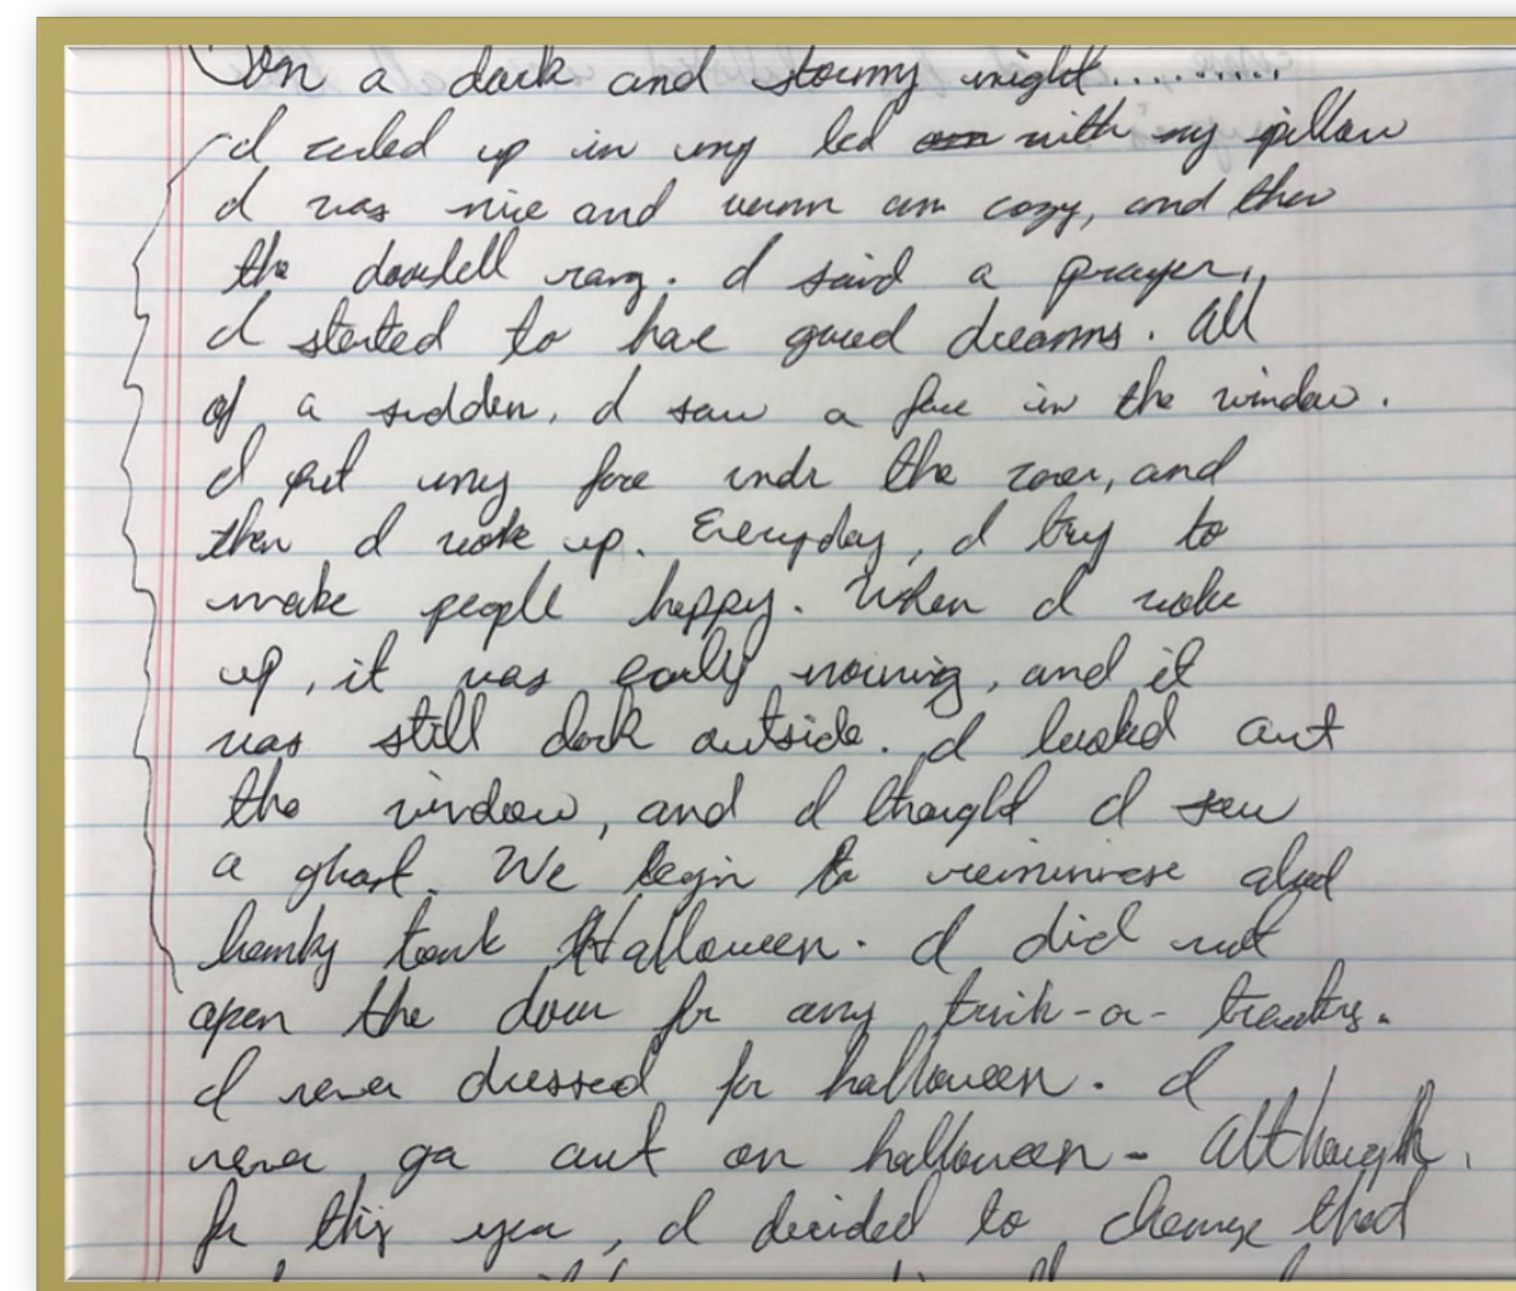 On a dark and stormy night..........
I curled up in my bed with my pillow
I was nice and warm and cozy, and then
the doorbell rang. I said a prayer,
I started to have good dreams. All
of a sudden, I saw a face in the window.
I put my face undr the cover, and
then I woke up. Everyday, I try to
make people happy. When I woke
up, it was early morning, and it
was still dark outside. I looked out
the window, and I thought I saw
a ghost. We begin to reiminese about
honky tonk Halloween. I did not
open the door for any trick-or-treaters.
I never dressed for halloween. I
never go out on halloween. Although,
for this year, I decided to change that